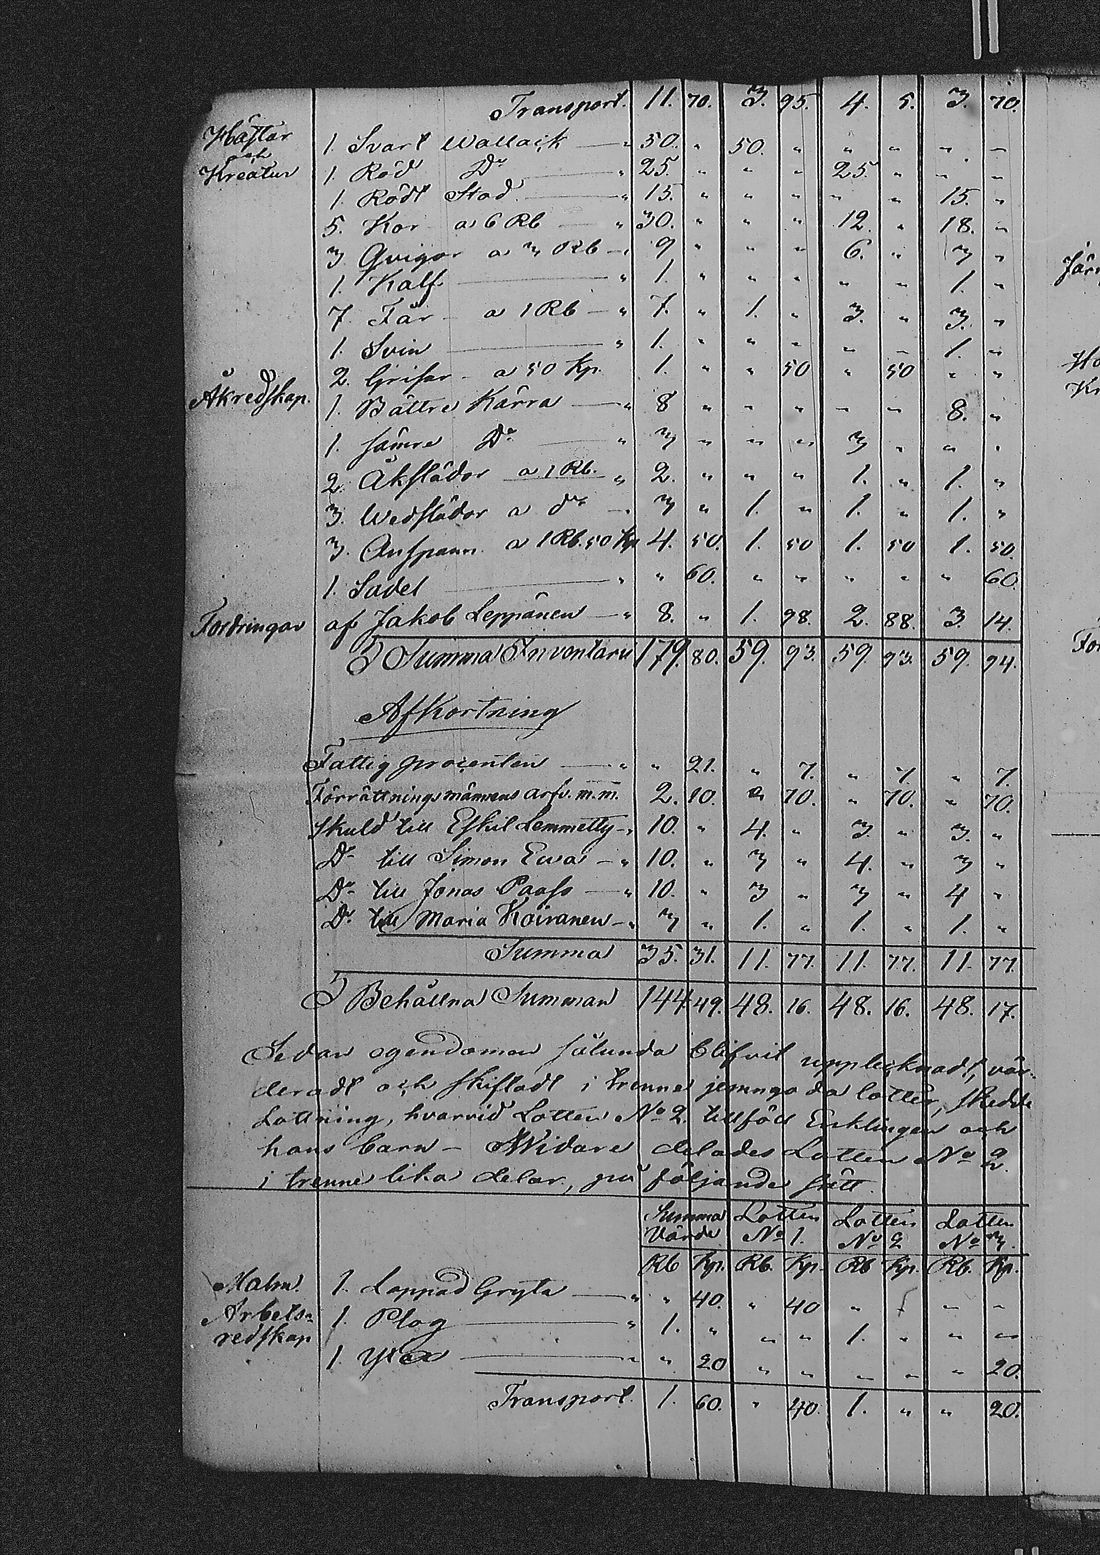 Transport. 11. 70. 3. 95. 4. 5. 3. 70.
Hästar 1. Svart Wallack — " 50. " 50. " " " " "
och
Kreatur 1. Röd Do " 25. " " " 25. " " "
1. Rödt Stod " 15. " " " " " 15. "
5. Kor a 6 Rb — " 30. " " " 12. " 18. "
3 Qvigor a 3 Rb — " 9 " " " 6. " 3 "
1. Kalf " 1. " " " " " 1. "
7. Får a 1 Rb — " 7. " 1. " 3. " 3. "
1. Svin " 1. " " " " " 1. "
2. Grisar a 50 Kp. 1. " " 50 " 50 " "
Åkredskap. 1. Bättre Kärra — " 8 " " " " " 8. "
1. sämre Do " 3 " " " 3. " " "
2. Åkslädor a 1 Rb. " 2. " " " 1. " 1. "
3. Wedslädor a do " 3 " 1. " 1. " 1. "
3. Anspann a 1 Rb. 50 Kp 4. 50. 1. 50 1. 50 1. 50.
1. Sadel " " 60. " " " " " 60.
Fordringar af Jakob Leppänen — " 8. " 1. 98. 2. 88. 3. 14.
Summa Inventarii 179. 80. 59. 93. 59. 93. 59. 94.
Afkortning
Fattig procenten — " " 21. " 7. " 7. " 7.
Förrättningsmännens arfv. m.m. 2. 10. " 70. " 70. " 70.
Skuld till Eskil Lemmetty — " 10. " 4. " 3. " 3. "
Do till Simon Ewa — " 10. " 3 " 4. " 3 "
Do till Jonas Paaso — " 10. " 3 " 3 " 4 "
Do till Maria Koiranen — " 3 " 1. " 1. " 1. "
Summa 35. 31. 11. 77. 11. 77. 11. 77.
Behållna Summan 144 49. 48. 16. 48. 16. 48. 17.
Sedan egendomen sålunda blifvit upptecknadt, vär-
deradt och skiftadt i trenne jemngoda lotter, skedde
Lottning, hvarvid Lotten No 2 tillföll Enklingen och
hans barn — Widare delades Lotten No 2
i trenne lika delar, på följande sätt.
Summa Lotten Lotten Lotten
Värde No 1. No 2 No 3.
Rb Kp. Rb. Kp. Rb Kp. Rb. Kp.
Malm. 1. Lappad Gryta — " " 40. " 40 " " " "
Arbets= 1. Plog " 1. " " " 1. " " "
redskap
1. Yxa " " 20 " " " " " 20.
Transport. 1. 60. " 40. 1. " " 20.